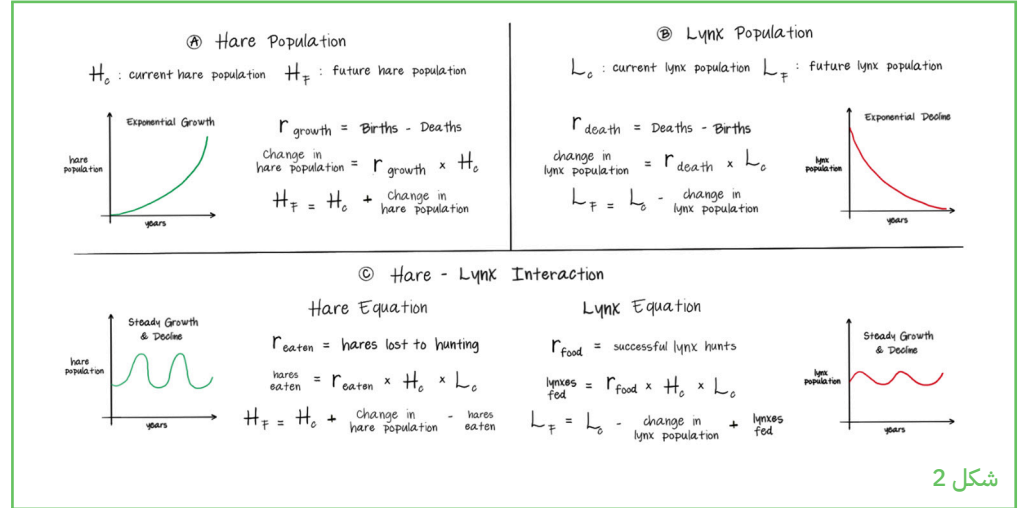 Ⓐ Hare Population
H_c : current hare population H_F : future hare population
Exponential Growth
hare
population
years
r growth = Births - Deaths
Change in
hare population = r growth × H_c
H_F = H_c + Change in
hare population
Ⓑ Lynx Population
L_c : current lynx population L_F : future lynx population
r death = Deaths - Births
change in
lynx population = r death × L_c
L_F = L_c - change in
lynx population
Exponential Decline
lynx
population
years
Ⓒ Hare - Lynx Interaction
Steady Growth
& Decline
hare
population
years
Hare Equation
r eaten = hares lost to hunting
hares
eaten = r eaten × H_c × L_c
H_F = H_c + Change in
hare population - hares
eaten
Lynx Equation
r food = successful lynx hunts
lynxes
fed = r food × H_c × L_c
L_F = L_c - change in
lynx population + lynxes
fed
Steady Growth
& Decline
lynx
population
years
شكل 2